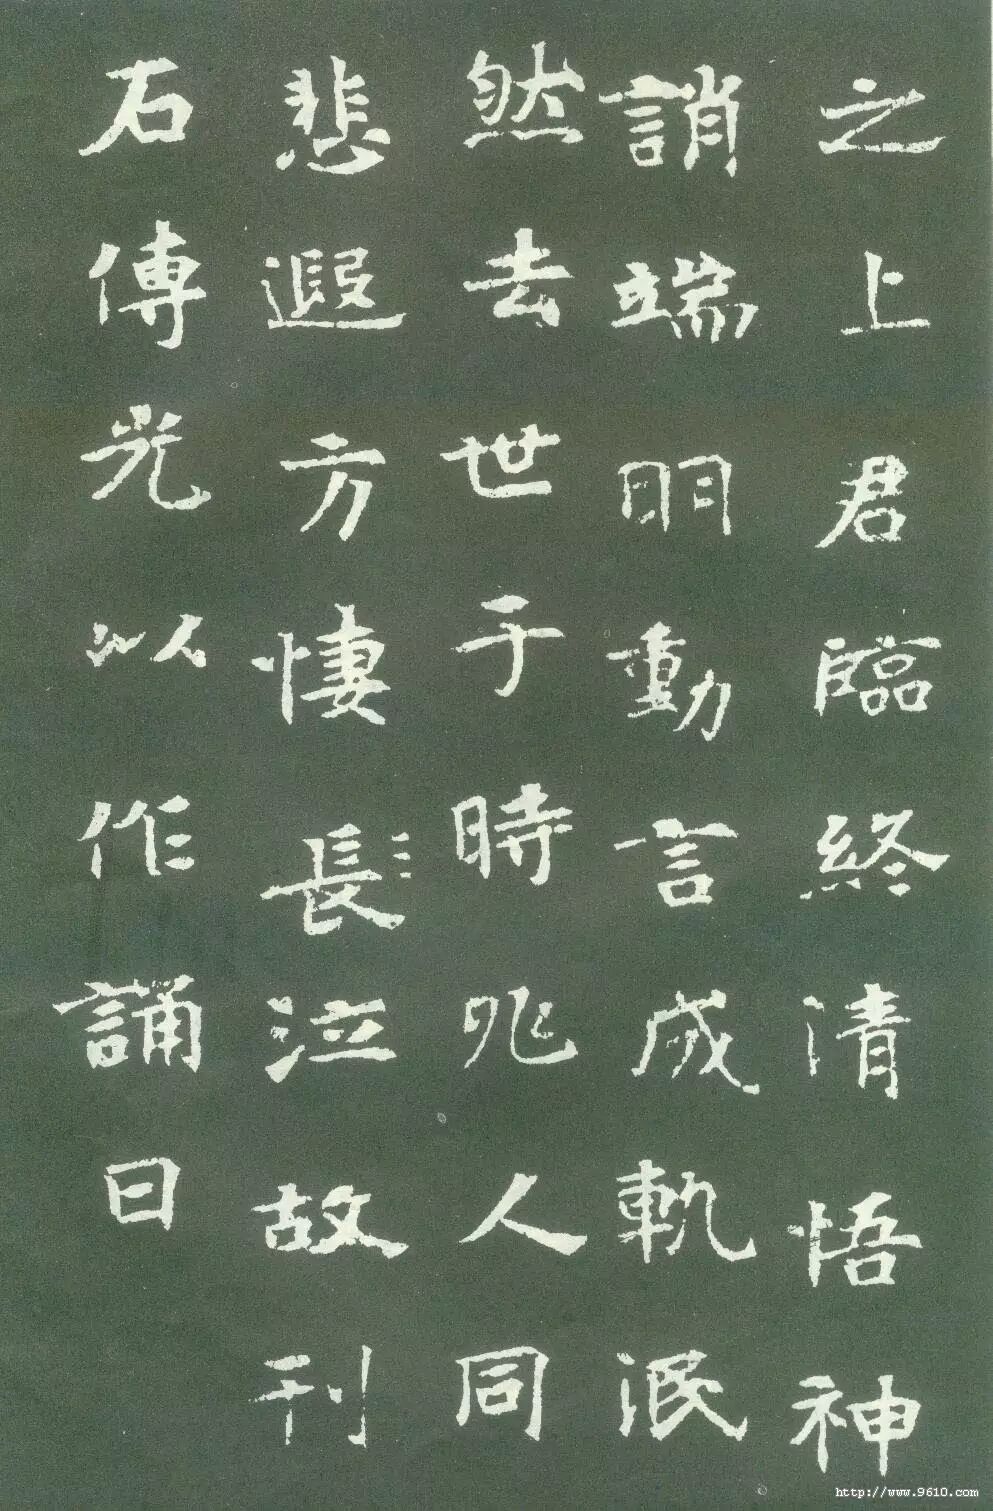 之上君臨終清悟神
誚端明動言成軌泯
然去世于時兆人同
悲遐方悽長泣故刊
石傳光以作誦曰
http://www.9610.com